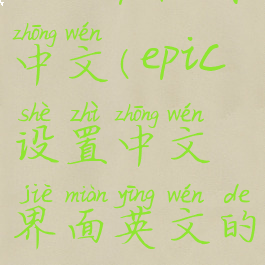 zhōng wén
中文(epic
shè zhì zhōng wén
设置中文
jiè miàn yīng wén de
界面英文的